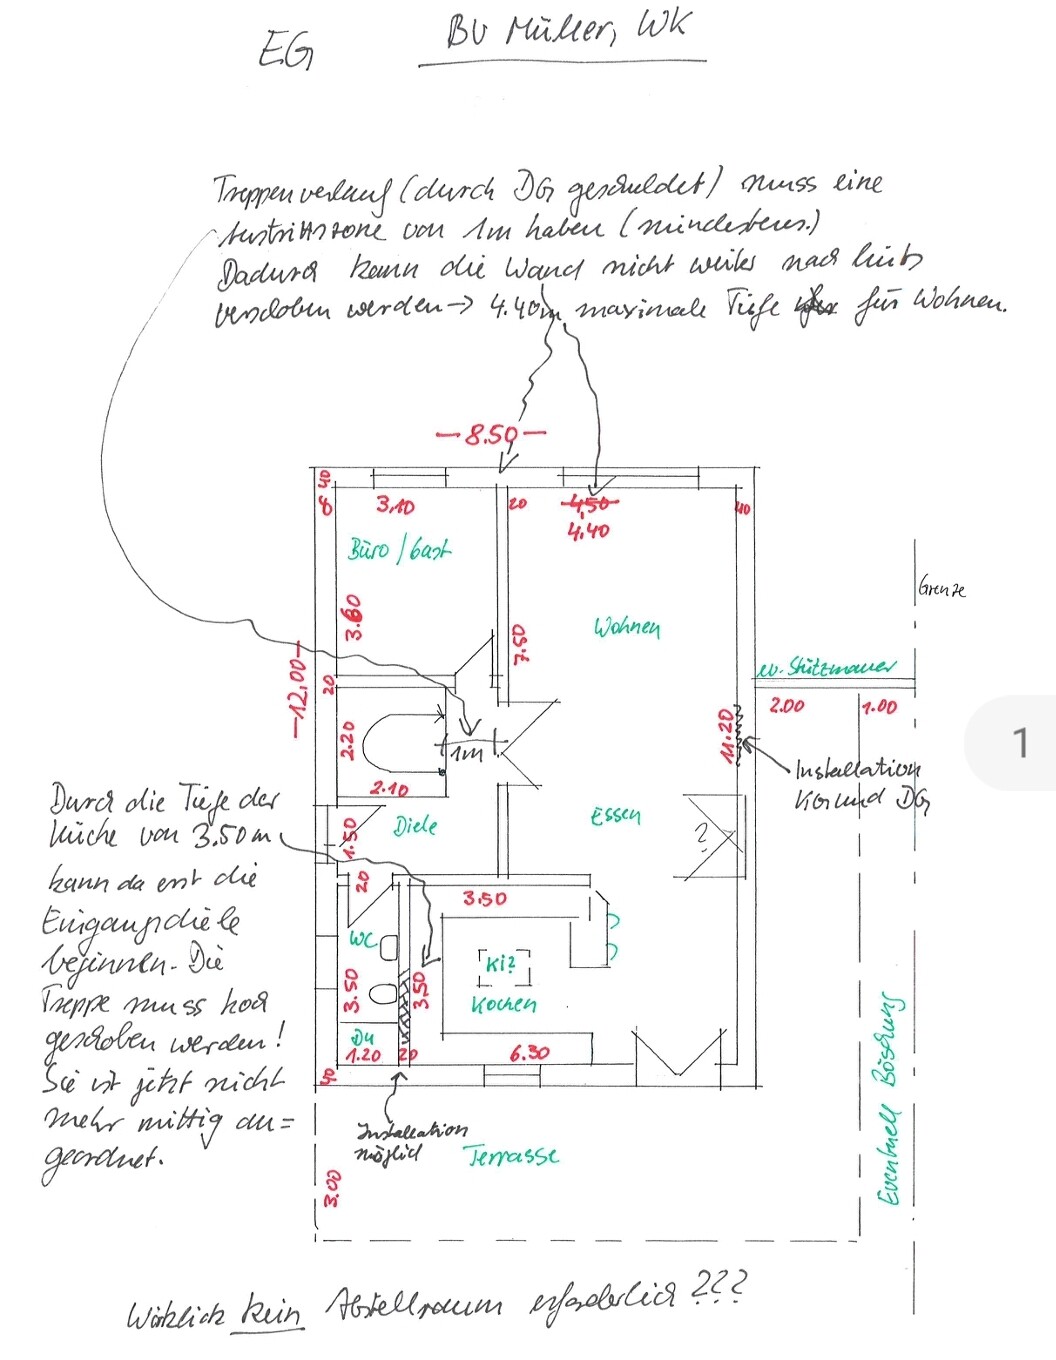 EG
BV Müller, WK
Treppenverlauf (durch DG geschuldet) muss eine
Austrittszone von 1m haben (mindestens.)
Dadurch kann die Wand nicht weiter nach links
verschoben werden → 4.40m maximale Tiefe für Wohnen.
— 8.50 —
40
3,10
20
4,50
40
4.40
Büro / Gast
Grenze
3.60
7.50
Wohnen
ev. Stützmauer
—12.00—
20
2.00
1.00
2.20
1m
11.20
2.10
Installation
KG und DG
Durch die Tiefe der
Küche von 3.50m
kann da erst die
Eingangsdiele
beginnen. Die
Treppe muss hoch
geschoben werden!
Sie ist jetzt nicht
mehr mittig an=
geordnet.
1.50
Diele
Essen
?
20
3.50
WC
Ki?
3.50
3.50
Kochen
Du
1.20
20
6.30
40
Eventuell Böschung
Installation
möglich
Terrasse
3.00
Wirklich kein Abstellraum erforderlich ???
1